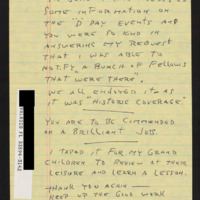 SOME INFORMATION ON
THE "D" DAY EVENTS AND
YOU WERE SO KIND IN
ANSWERING MY REQUEST
THAT I WAS ABLE TO
NOTIFY A BUNCH OF FELLOWS
THAT WERE THERE".
WE ALL ENJOYED IT AS
IT WAS "HISTORIC COVERAGE."
YOU ARE TO BE COMMENDED
ON A BRILLIANT JOB.
I TAPED IT FOR MY GRAND
CHILDREN TO REVIEW AT THEIR
LEISURE AND LEARN A LESSON.
THANK YOU AGAIN —
KEEP UP THE GOOD WORK